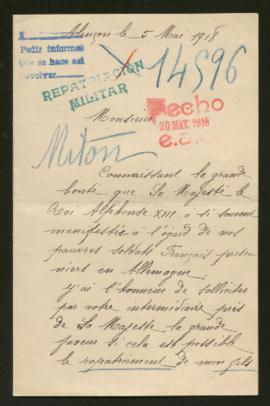 Alençon le 5 Mai 1918
Pedir informes
Que se hace así
devolver
X 14596
REPATRIACION
MILITAR
Hecho
20 MAY. 1918
Monsieur
Miton
Connaissant la grande
bonté que Sa Majesté le
Roi Alphonse XIII a si souvent
manifestée à l'égard de nos
pauvres soldats Français prison-
niers en Allemagne
j'ai l'honneur de solliciter
par votre intermédiaire près
de Sa Majesté la grande
faveur si cela est possible
le rapatriement de mon fils